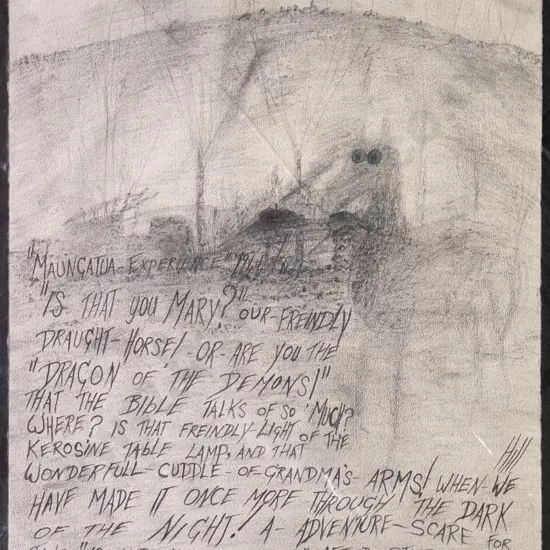 "MAUNGATUA-EXPERIENCE" 194
"IS THAT YOU MARY?" OUR-FREINDLY
DRAUGHT-HORSE/-OR-ARE YOU THE
"DRAGON OF THE DEMONS!"
THAT THE BIBLE TALKS OF SO 'MUCH?
WHERE? IS THAT FREINDLY-LIGHT OF THE
KEROSINE TABLE LAMP, AND THAT
WONDERFULL-CUDDLE-OF GRANDMA'S-ARMS! WHEN-WE
HAVE MADE IT ONCE MORE THROUGH THE DARK
OF THE NIGHT! A-ADVENTURE-SCARE FOR
Hill